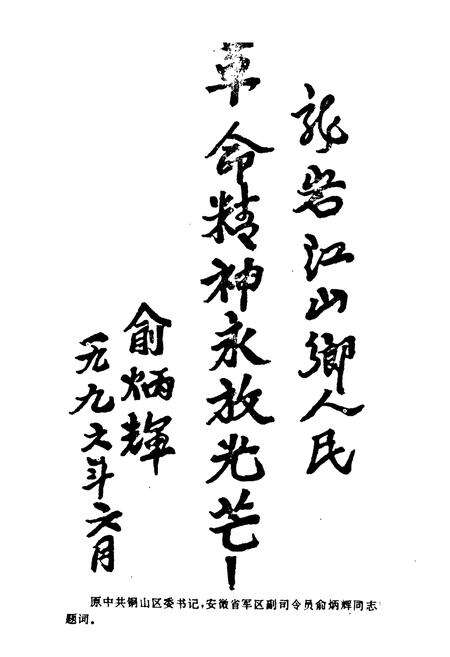 龍岩江山鄉人民
革命精神永放光芒！
俞炳輝
一九九六年六月
原中共铜山区委书记，安徽省军区副司令员俞炳辉同志
题词。